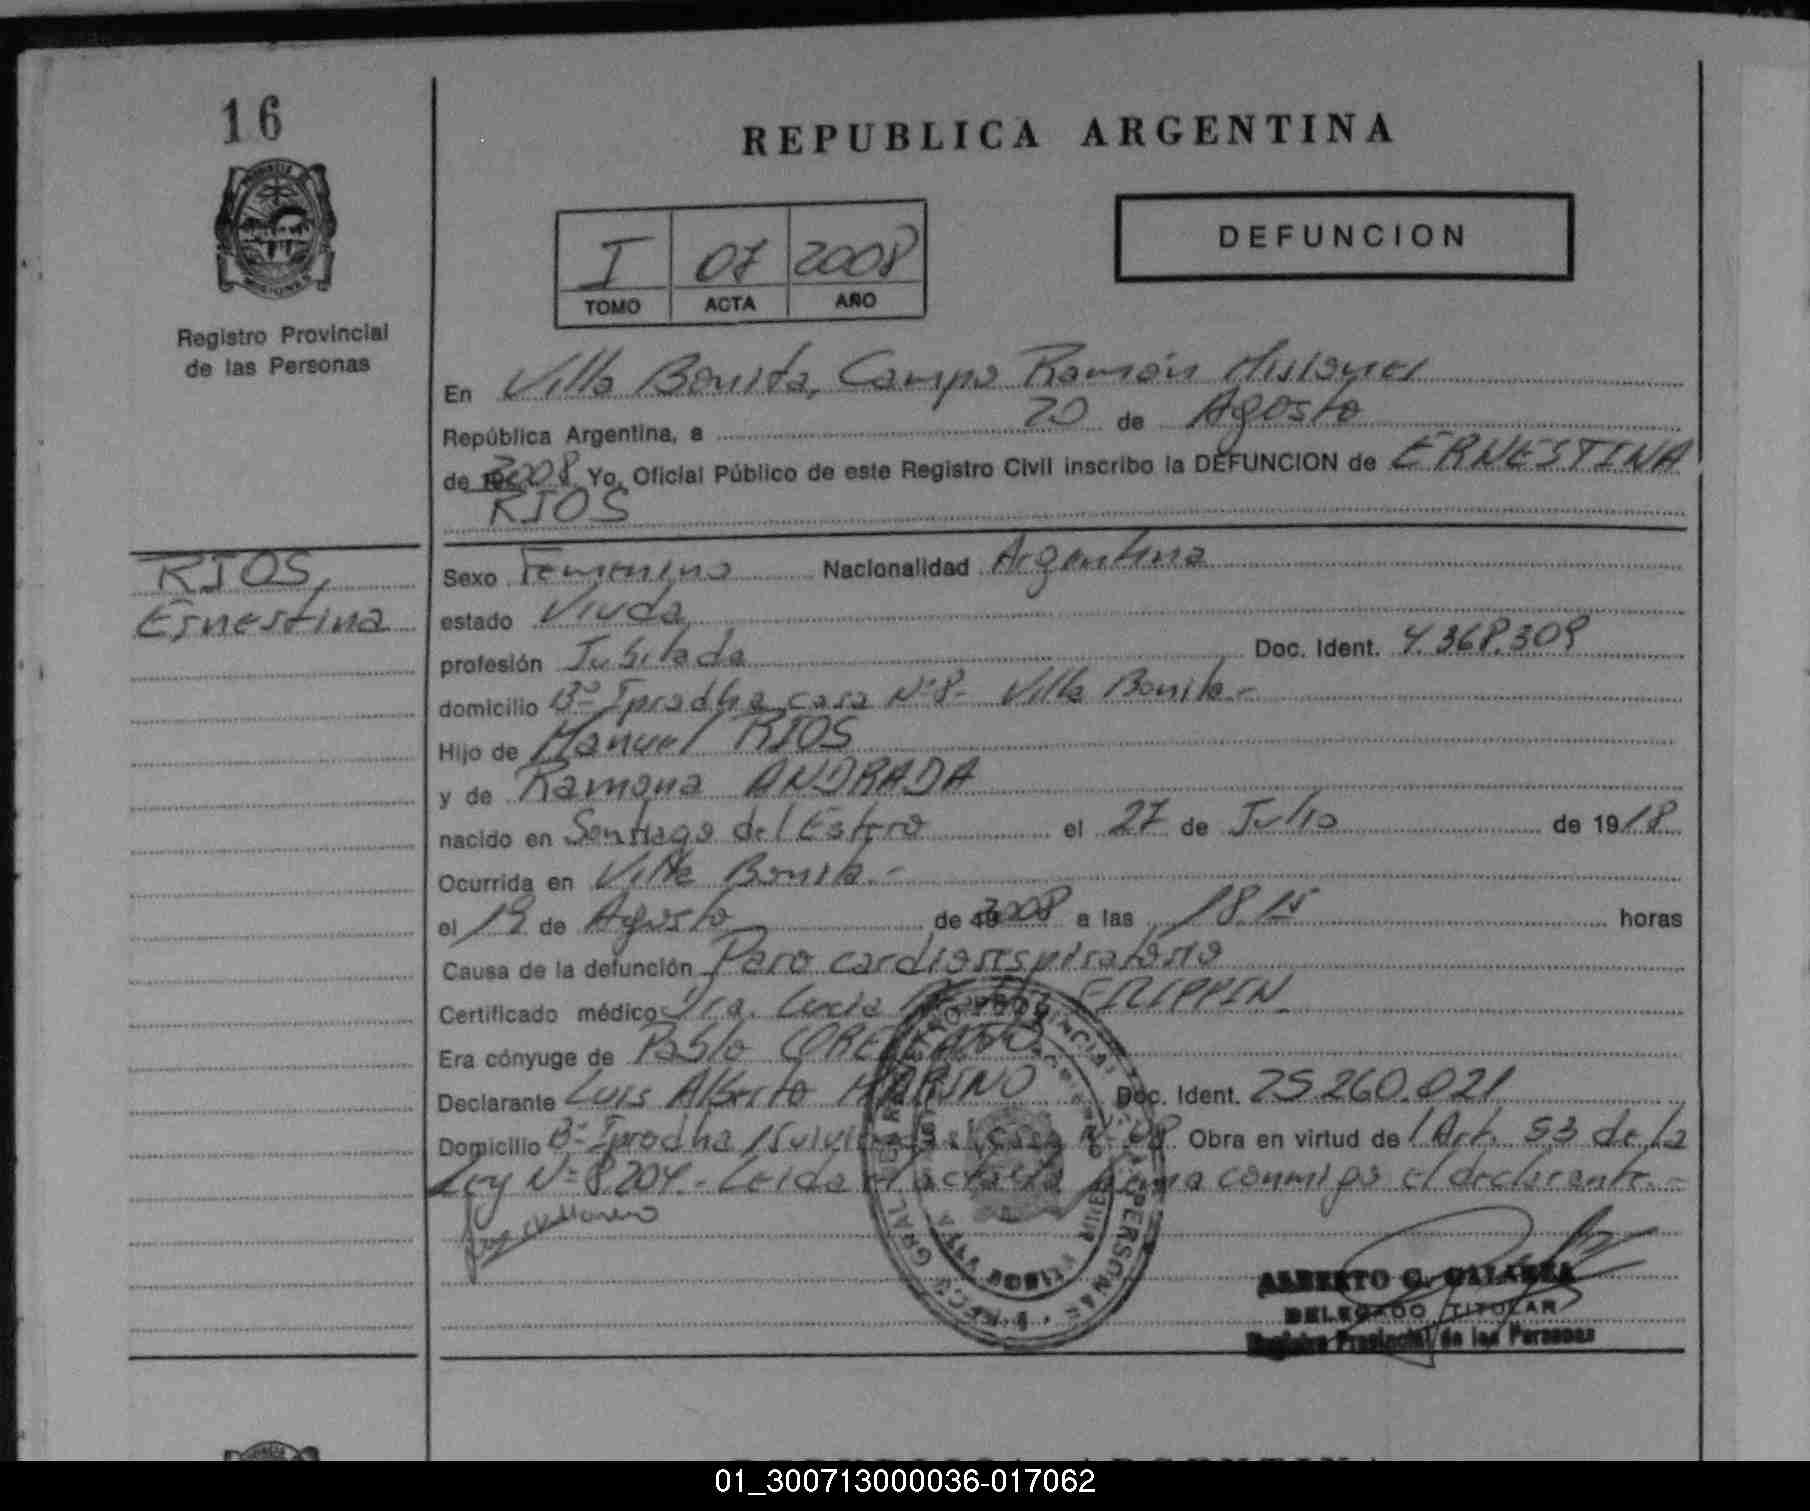 16
REPUBLICA ARGENTINA
DEFUNCION
I 07 2008
TOMO ACTA AÑO
Registro Provincial
de las Personas
En Villa Bonita, Campo Ramón Misiones
República Argentina, a 20 de Agosto
de 2008 Yo, Oficial Público de este Registro Civil inscribo la DEFUNCION de ERNESTINA
RIOS
RIOS,
Ernestina
Sexo Femenino Nacionalidad Argentina
estado Viuda
profesión Jubilada Doc. Ident. 4.368.309
domicilio Bº Iprodha casa Nº 8- Villa Bonita.-
Hijo de Manuel RIOS
y de Ramona ANDRADA
nacido en Santiago del Estero el 27 de Julio de 1918
Ocurrida en Villa Bonita.-
el 19 de Agosto de 2008 a las 18.15 horas
Causa de la defunción Paro cardiorrespiratorio
Certificado médico Dra. Lucia FILIPPIN
Era cónyuge de Pablo
Declarante Luis Alberto MARINO Doc. Ident. 25.260.021
Domicilio Bº Iprodha casa Nº 08 Obra en virtud del Art. 53 de la
Ley Nº 8204.- Leida el acta la firma conmigo el declarante.-
ALBERTO G. GALARZA
DELEGADO TITULAR
Registro Provincial de las Personas
01_300713000036-017062